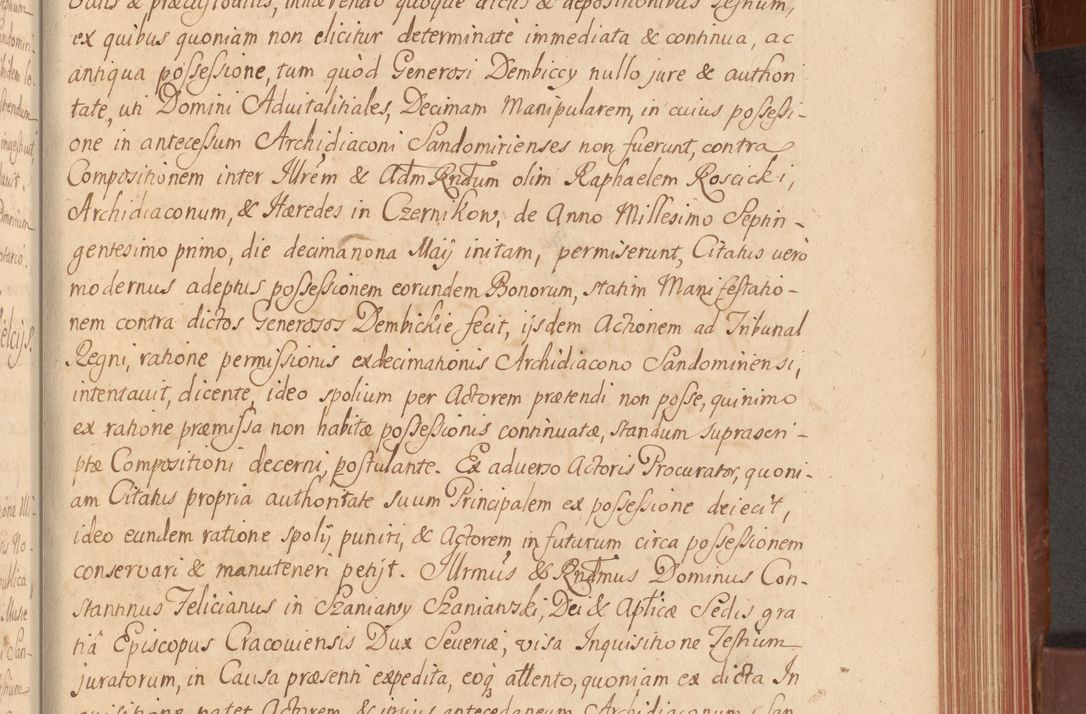 ex quibus quoniam non elicitur determinatè immediata & continua, ac
antiqua possessione, tum quòd Generosi Dembiccy nullo jure & authori
tate, uti Domini Advitalitiales, Decimam Manipularem, in cuius possessi-
one in antecessum Archidiaconi Sandomirienses non fuerunt, contra
Compositionem inter Illrem & Adm Rndum olim Raphaelem Roscicki,
Archidiaconum, & Hæredes in Czernikow, de Anno Millesimo Septin-
gentesimo primo, die decimanona Maij initam, permiserunt, Citatus verò
modernus adeptus possessionem eorundem Bonorum, statim Manifestatio-
nem contra dictos Generosos Dembickie fecit, ijsdem Actionem ad Tribunal
Regni, ratione permissionis exdecimationis Archidiacono Sandomiriensi,
intentavit, dicente, ideo spolium per Actorem prætendi non posse, quinimo
ex ratione præmissa non habitæ possessionis continuatæ, standum suprascri-
ptæ Compositioni decerni, postulante. Ex adverso Actoris Procurator, quoni-
am Citatus propria authoritate suum Principalem ex possessione deiecit,
ideo eundem ratione spolij puniri, & Actorem in futurum circa possessionem
conservari & manuteneri petijt. Illrmus & Rndmus Dominus Con-
stantinus Felicianus in Szaniawy Szaniawski, Dei & Aplicæ Sedis gra
tiâ Episcopus Cracoviensis Dux Severiæ, visa Inquisitione Testium
juratorum, in Causa præsenti expedita, eoq; attento, quoniam ex dicta In
quisitione patet Actorem & ipsius antecedaneum Archidiaconum San